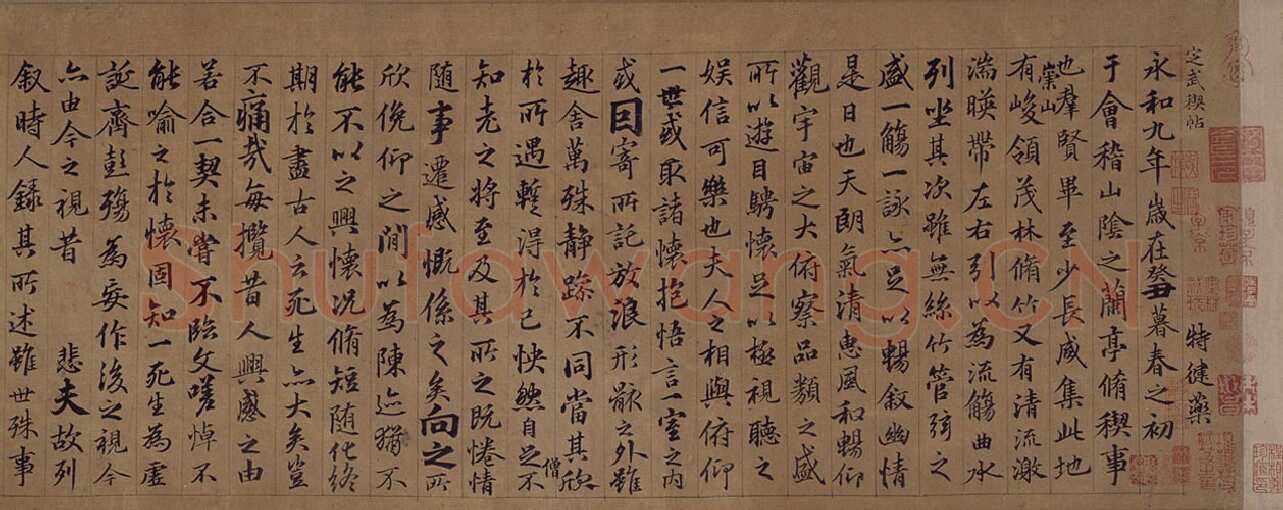 定武禊帖
特健藥
永和九年歲在癸丑暮春之初
于會稽山陰之蘭亭脩稧事
也羣賢畢至少長咸集此地
有崇山峻領茂林脩竹又有清流激
湍暎帶左右引以為流觴曲水
列坐其次雖無絲竹管弦之
盛一觴一詠亦足以暢叙幽情
是日也天朗氣清惠風和暢仰
觀宇宙之大俯察品類之盛
所以遊目騁懷足以極視聽之
娱信可樂也夫人之相與俯仰
一世或取諸懷抱悟言一室之內
或因寄所託放浪形骸之外雖
趣舍萬殊静躁不同當其欣
於所遇暫得於己怏然自足不
知老之將至及其所之既惓情
隨事遷感慨係之矣向之所
欣俛仰之間以為陳迹猶不
能不以之興懷況脩短随化終
期於盡古人云死生亦大矣豈
不痛哉每攬昔人興感之由
若合一契未嘗不臨文嗟悼不
能喻之於懷固知一死生為虛
誕齊彭殤為妄作後之視今
亦由今之視昔 悲夫故列
叙時人錄其所述雖世殊事
僧
Shufawang.CN